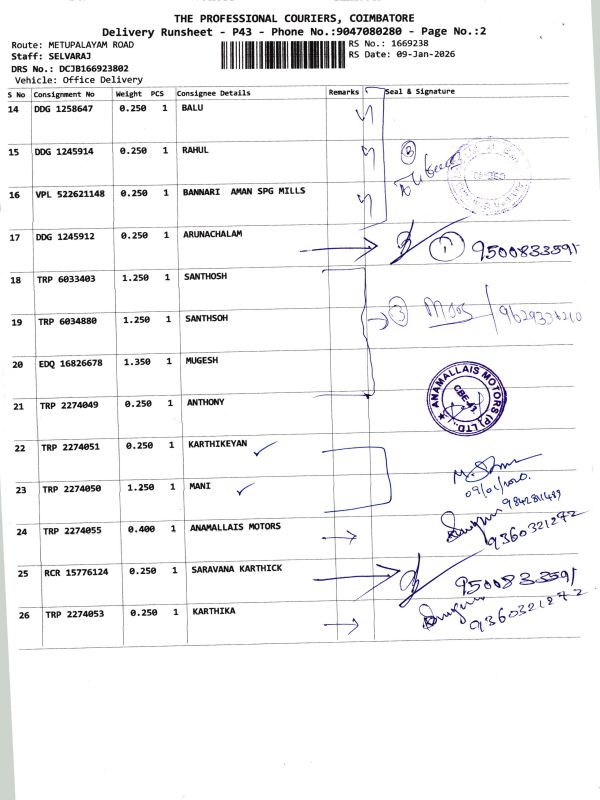 THE PROFESSIONAL COURIERS, COIMBATORE
Delivery Runsheet - P43 - Phone No.:9047080280 - Page No.:2
Route: METUPALAYAM ROAD
RS No.: 1669238
Staff: SELVARAJ
RS Date: 09-Jan-2026
DRS No.: DCJB166923802
Vehicle: Office Delivery
S No Consignment No Weight PCS Consignee Details Remarks Seal & Signature
14 DDG 1258647 0.250 1 BALU
15 DDG 1245914 0.250 1 RAHUL
16 VPL 522621148 0.250 1 BANNARI AMAN SPG MILLS
17 DDG 1245912 0.250 1 ARUNACHALAM 1 9500833591
18 TRP 6033403 1.250 1 SANTHOSH
19 TRP 6034880 1.250 1 SANTHSOH 3
20 EDQ 16826678 1.350 1 MUGESH
21 TRP 2274049 0.250 1 ANTHONY
ANAMALLAIS MOTORS (P) LTD.,
CBE-43
22 TRP 2274051 0.250 1 KARTHIKEYAN
23 TRP 2274050 1.250 1 MANI
24 TRP 2274055 0.400 1 ANAMALLAIS MOTORS 9360321272
25 RCR 15776124 0.250 1 SARAVANA KARTHICK 9500833591
26 TRP 2274053 0.250 1 KARTHIKA 9360321272